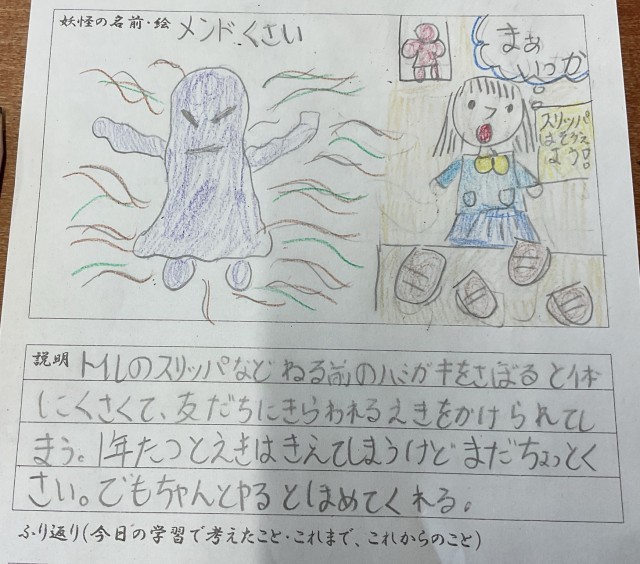 妖怪の名前・絵 メンドくさい
まぁ
いっか
スリッパ
はそろえ
よう!
説明 トイレのスリッパなど ねる前のハミガキをさぼると体
にくさくて、友だちにきらわれるえきをかけられてし
まう。1年たつとえきはきえてしまうけどまだちょっとく
さい。でもちゃんとやるとほめてくれる。
ふり返り(今日の学習で考えたこと・これまで、これからのこと)